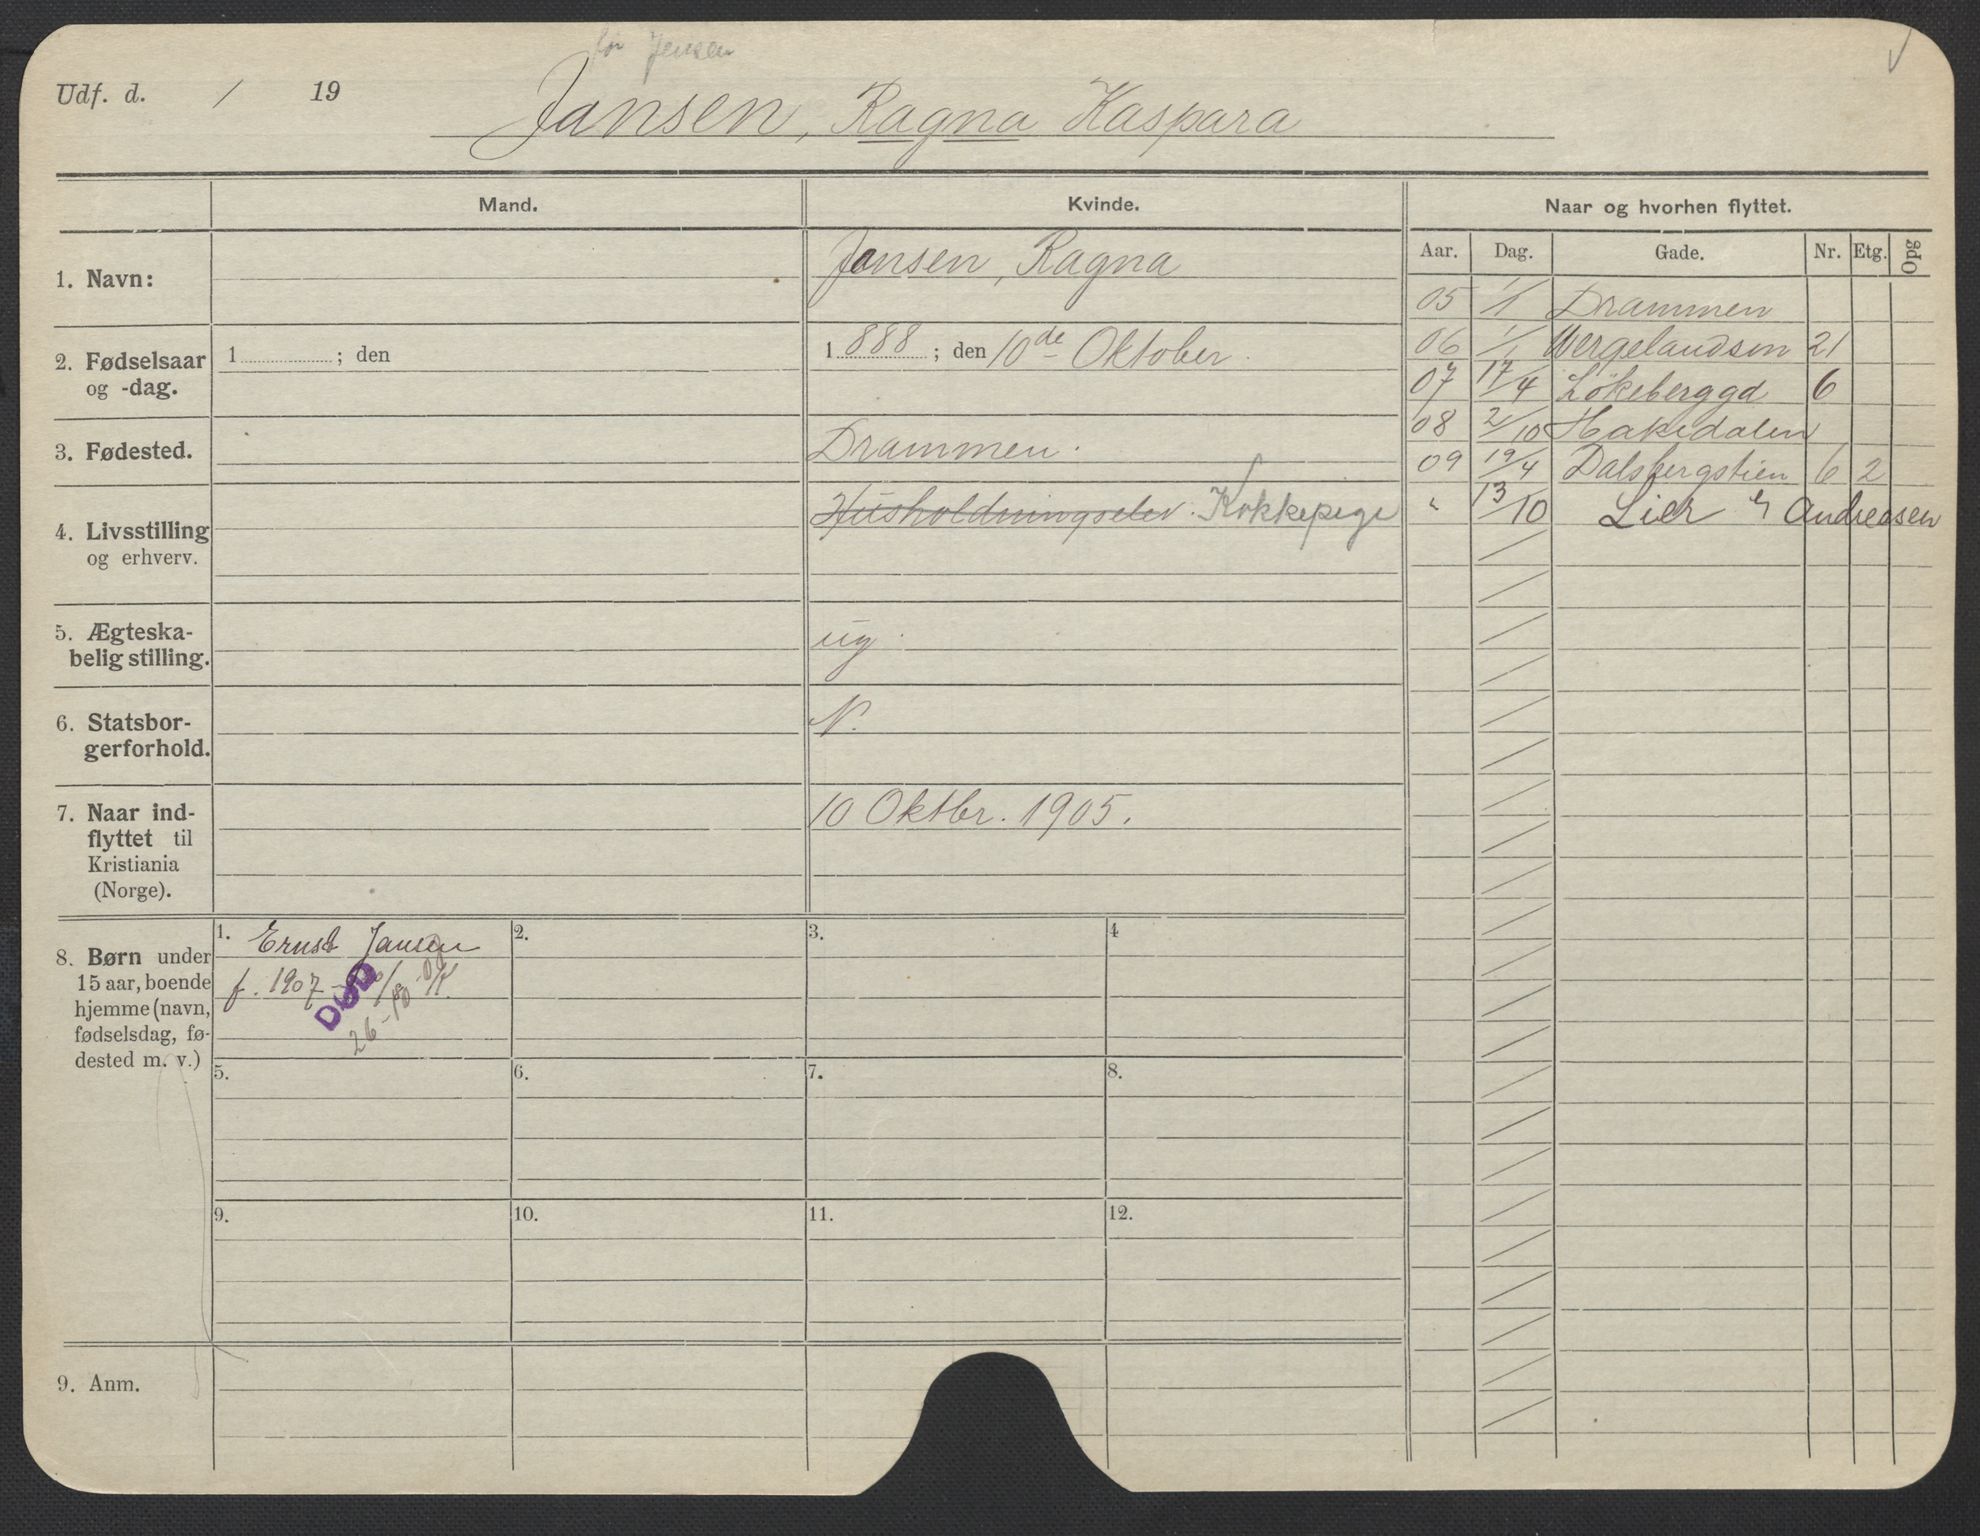 før Jensen
Udf. d. / 19
Jansen, Ragna Kaspara
Mand.
Kvinde.
Naar og hvorhen flyttet.
Aar. Dag. Gade. Nr. Etg. Opg
1. Navn:
Jansen, Ragna
2. Fødselsaar
og -dag.
1 ; den
1888 ; den 10de Oktober.
3. Fødested.
Drammen.
4. Livsstilling
og erhverv.
Husholdningselev. Kokkepige
5. Ægteska-
belig stilling.
ug.
6. Statsbor-
gerforhold.
N.
7. Naar ind-
flyttet til
Kristiania
(Norge).
10 Oktbr. 1905.
05 1/1 Drammen
06 1/1 Wergelandsvn 21
07 17/4 Løkeberggd 6
08 2/10 Hakedalen
09 19/4 Dalsbergstien 6 2
" 13/10 Lier Andreasen
8. Børn under
15 aar, boende
hjemme (navn,
fødselsdag, fø-
dested m. v.)
1. Ernst Jansen
f. 1907
DØD
26-10
2.
3.
4
5.
6.
7.
8.
9.
10.
11.
12.
9. Anm.